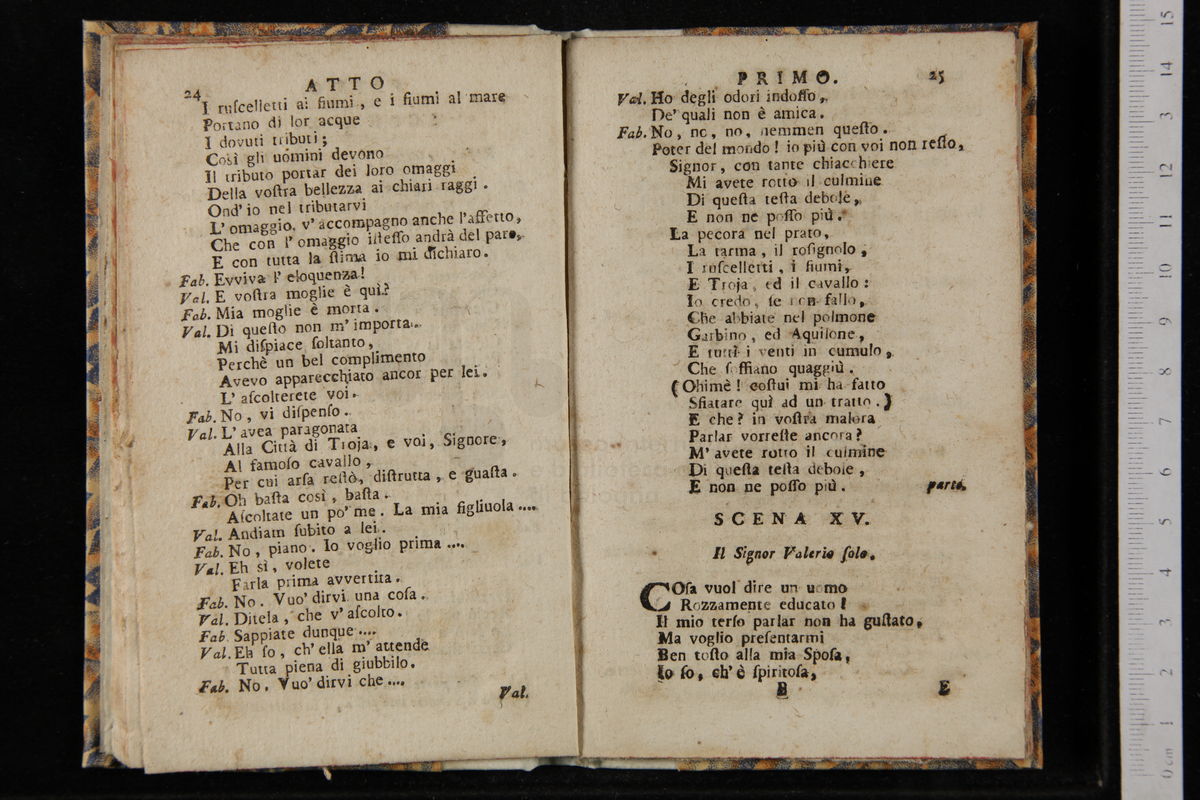 24
ATTO
I ruſcelletti ai fiumi, e i fiumi al mare
Portano di lor acque
I dovuti tributi;
Così gli uomini devono
Il tributo portar dei loro omaggi
Della voſtra bellezza ai chiari raggi.
Ond' io nel tributarvi
L' omaggio, v' accompagno anche l'affetto,
Che con l' omaggio iſteſſo andrà del pare,
E con tutta la ſtima io mi dichiaro.
Fab. Evviva l' eloquenza!
Val. E voſtra moglie è quì?
Fab. Mia moglie è morta.
Val. Di queſto non m' importa.
Mi diſpiace ſoltanto,
Perchè un bel complimento
Avevo apparecchiato ancor per lei.
L' aſcolterete voi.
Fab. No, vi diſpenſo.
Val. L' avea paragonata
Alla Città di Troja, e voi, Signore,
Al famoſo cavallo,
Per cui arſa reſtò, diſtrutta, e guaſta.
Fab. Oh baſta così, baſta.
Aſcoltate un po' me. La mia figliuola ....
Val. Andiam ſubito a lei.
Fab. No, piano. Io voglio prima ....
Val. Eh sì, volete
Farla prima avvertita.
Fab. No. Vuo' dirvi una coſa.
Val. Ditela, che v' aſcolto.
Fab. Sappiate dunque ....
Val. Eh ſo, ch' ella m' attende
Tutta piena di giubbilo.
Fab. No, Vuo' dirvi che ....
Val.
PRIMO.
25
Val. Ho degli odori indoſſo,
De' quali non è amica.
Fab. No, no, no, nemmen queſto.
Poter del mondo! io più con voi non reſto,
Signor, con tante chiacchiere
Mi avete rotto il culmine
Di queſta teſta debole,
E non ne poſſo più.
La pecora nel prato,
La tarma, il roſignolo,
I ruſcelletti, i fiumi,
E Troja, ed il cavallo:
Io credo, ſe non fallo,
Che abbiate nel polmone
Garbino, ed Aquilone,
E tutti i venti in cumulo,
Che ſoffiano quaggiù.
(Ohimè! coſtui mi ha fatto
Sfiatare quì ad un tratto.)
E che? in voſtra malora
Parlar vorreſte ancora?
M' avete rotto il culmine
Di queſta teſta debole,
E non ne poſſo più. parte.
SCENA XV.
Il Signor Valerio ſolo.
COſa vuol dire un uomo
Rozzamente educato!
Il mio terſo parlar non ha guſtato,
Ma voglio preſentarmi
Ben toſto alla mia Spoſa,
Io ſo, ch' è ſpiritoſa,
B
E